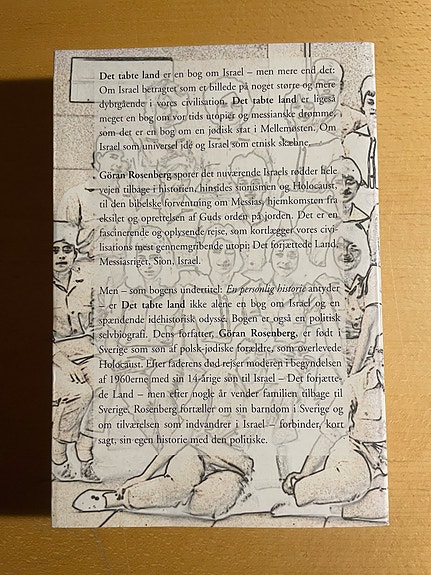 Det tabte land er en bog om Israel – men mere end det:
Om Israel betragtet som et billede på noget større og mere
dybrgående i vores civilisation. Det tabte land er ligeså
meget en bog om vor tids utopier og messianske drømme,
som det er en bog om en jødisk stat i Mellemøsten. Om
Israel som universel idé og Israel som etnisk skæbne.
Göran Rosenberg sporer det nuværende Israels rødder hele
vejen tilbage i historien, hinsides sionismen og Holocaust,
til den bibelske forventning om Messias, hjemkomsten fra
eksilet og oprettelsen af Guds orden på jorden. Det er en
fascinerende og oplysende rejse, som kortlægger vores civi-
lisations mest gennemgribende utopi: Det forjættede Land,
Messiasriget, Sion, Israel.
Men – som bogens undertitel: En personlig historie antyder
– er Det tabte land ikke alene en bog om Israel og en
spændende idéhistorisk odyssé. Bogen er også en politisk
selvbiografi. Dens forfatter, Göran Rosenberg, er født i
Sverige som søn af polsk-jødiske forældre, som overlevede
Holocaust. Efter faderens død rejser moderen i begyndelsen
af 1960erne med sin 14-årige søn til Israel – Det forjætte-
de Land – men efter nogle år vender familien tilbage til
Sverige. Rosenberg fortæller om sin barndom i Sverige og
om tilværelsen som indvandrer i Israel – forbinder, kort
sagt, sin egen historie med den politiske.